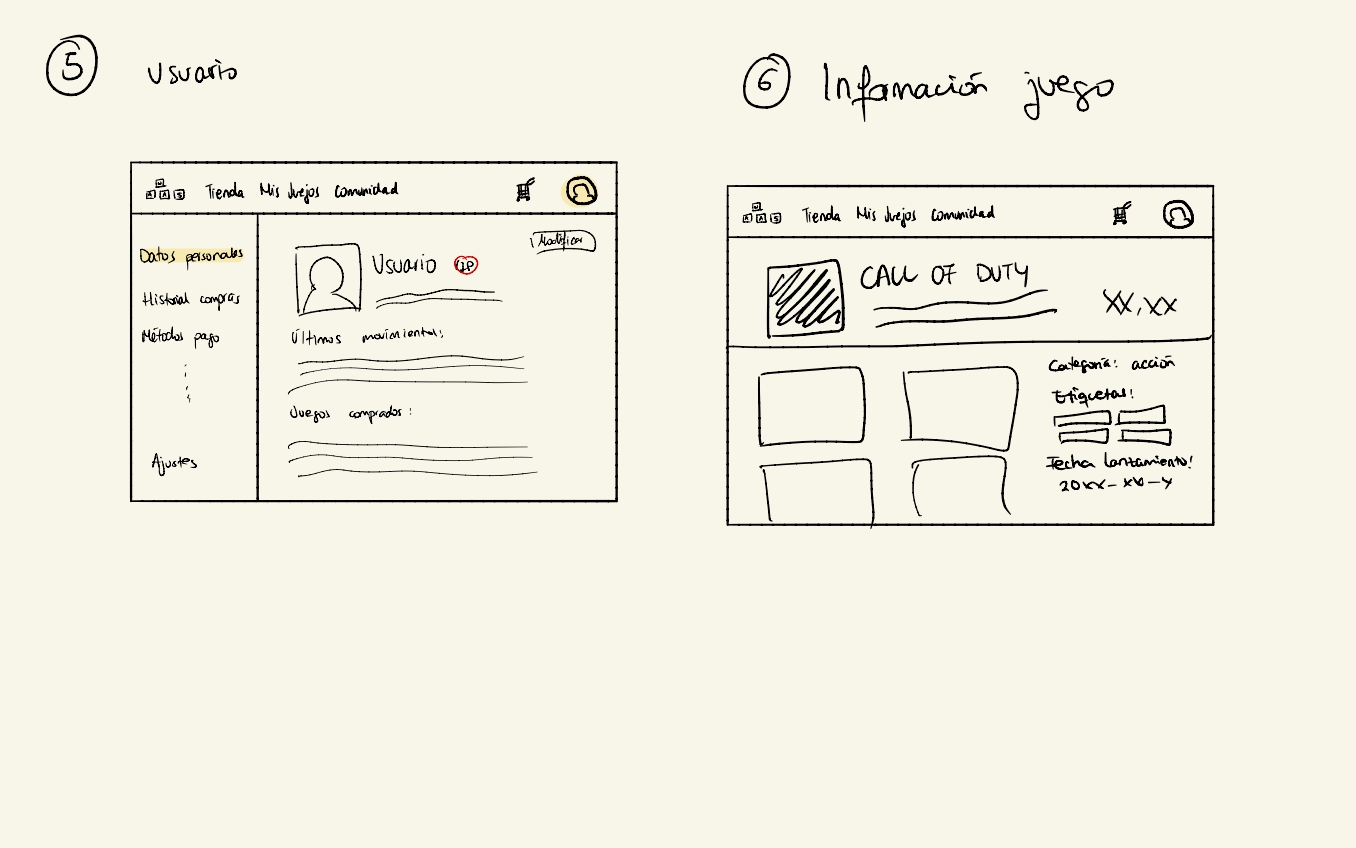 5 Usuario
Tienda Mis Juejos Comunidad
Datos personales
Historial compras
Métodos pago
Ajustes
Modificar
Usuario
Últimos movimientos:
Juegos comprados:
6 Información juego
Tienda Mis Juejos Comunidad
CALL OF DUTY
XX,XX
Categoría: acción
Etiquetas:
Fecha lanzamiento:
20XX-XX-